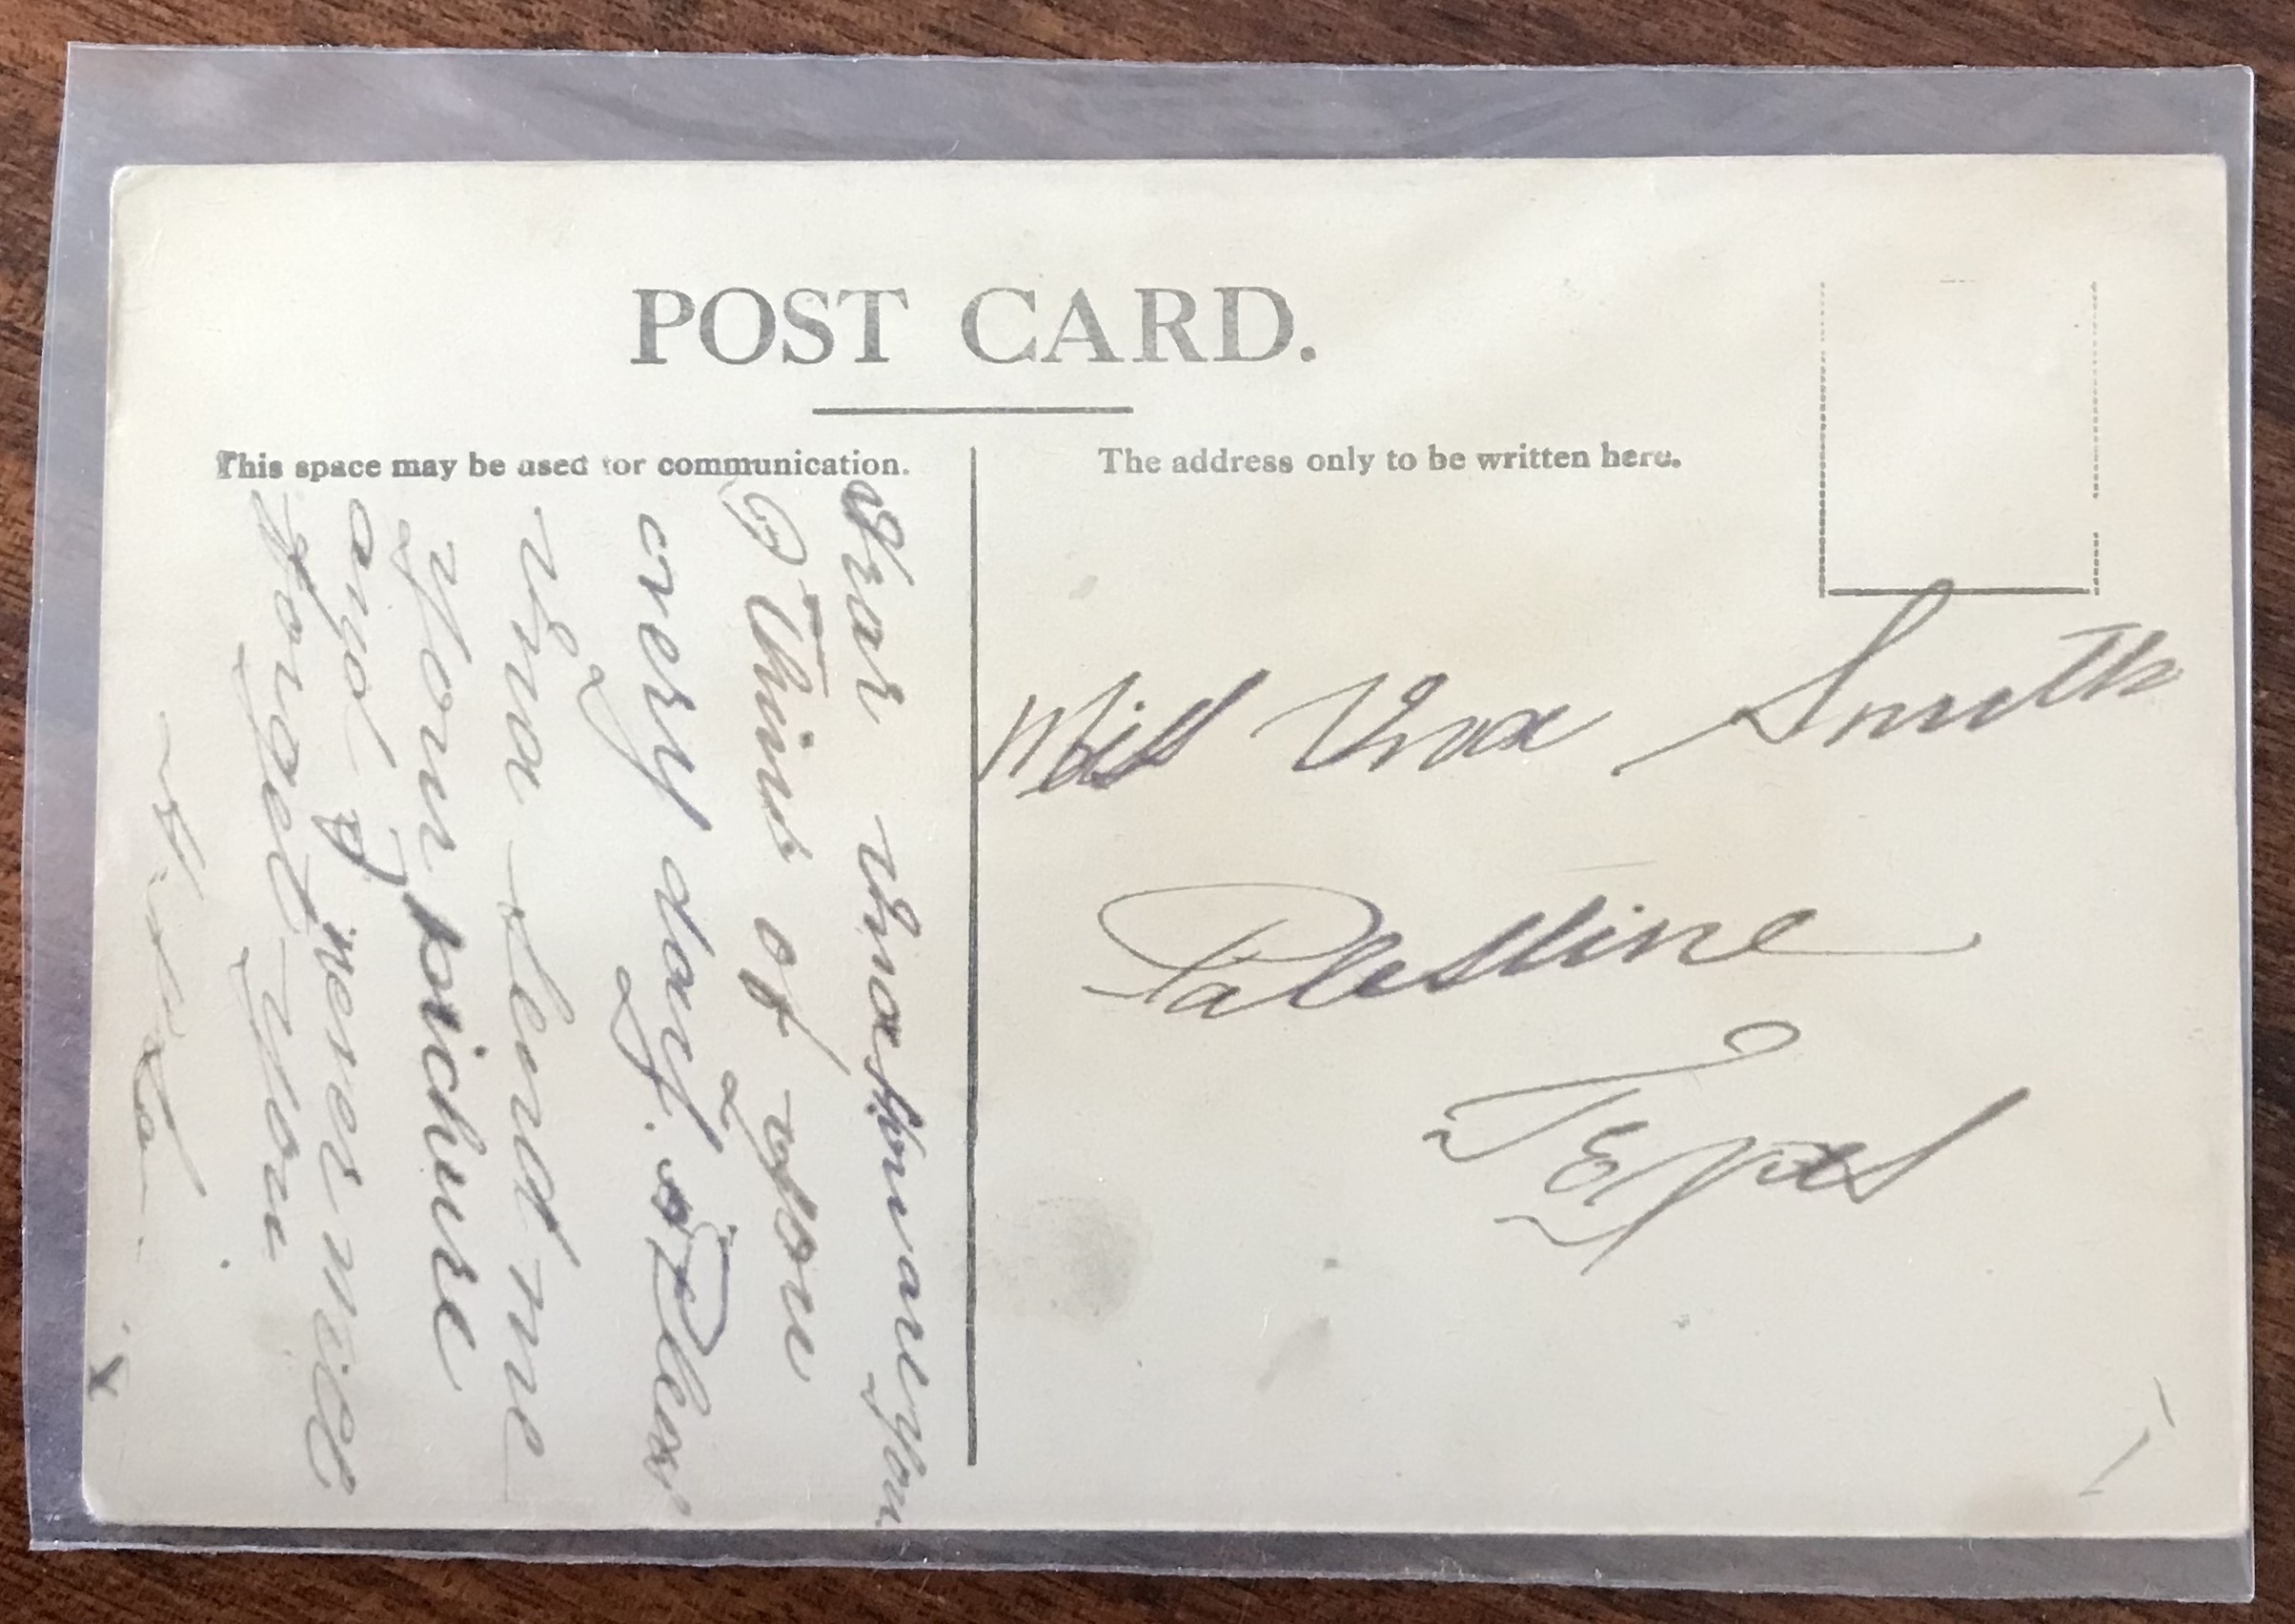 POST CARD.
This space may be used for communication.
The address only to be written here.
Dear Vina How are you
I Think of you
every day. Pleas
Vina send me
your pichure
and I never will
forget you
Miss Vina Smith
Palestine
Texas